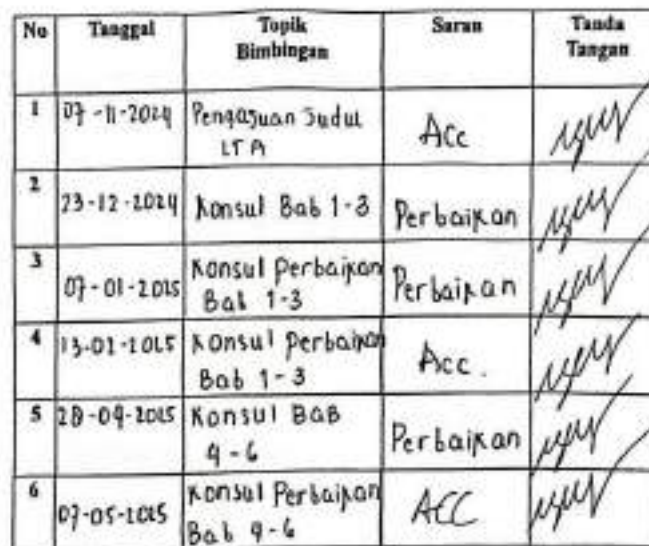 No Tanggal Topik Bimbingan Saran Tanda Tangan
1 07-11-2024 Pengajuan Judul LTA Acc
2 23-12-2024 Konsul Bab 1-3 Perbaikan
3 07-01-2025 Konsul Perbaikan Bab 1-3 Perbaikan
4 13-02-2025 Konsul Perbaikan Bab 1-3 Acc.
5 28-04-2025 Konsul BAB 4-6 Perbaikan
6 07-05-2025 Konsul Perbaikan Bab 4-6 ACC